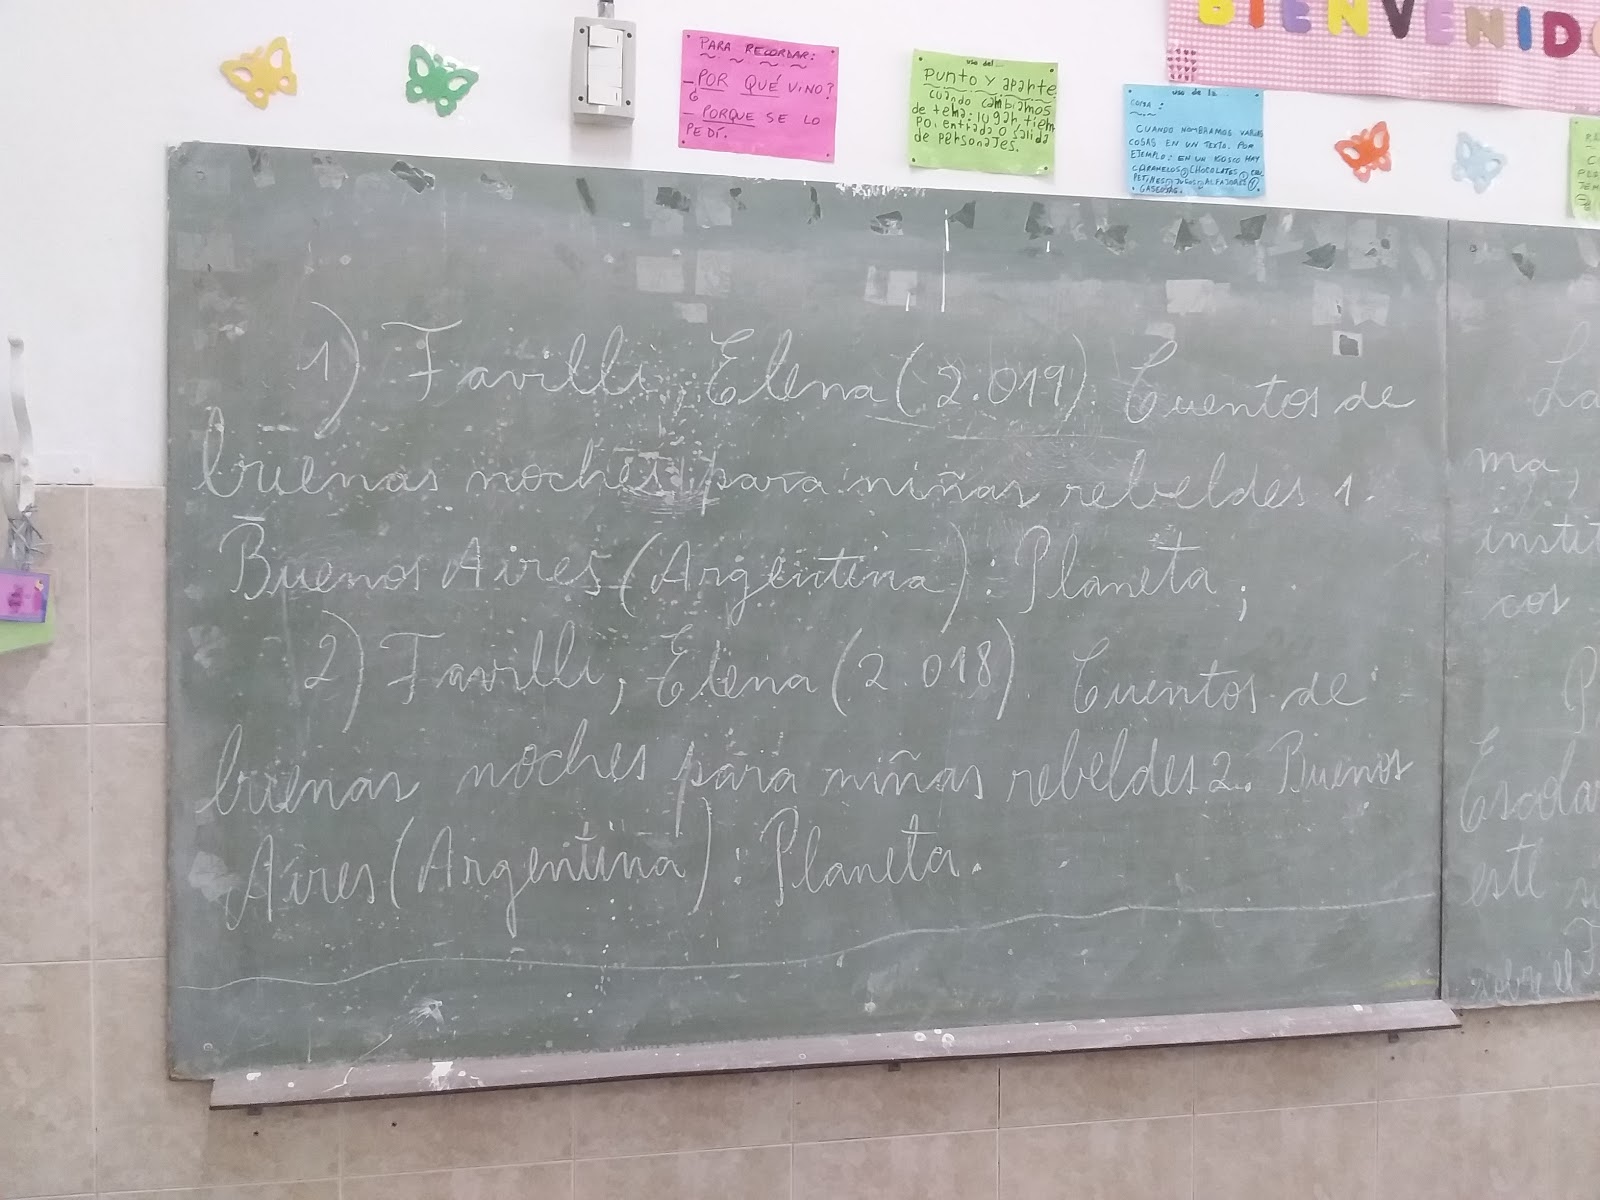 BIENVENIDO
PARA RECORDAR:
- ¿POR QUÉ VINO?
- PORQUE SE LO
PEDÍ.
uso del...
punto y aparte
cuando cambiamos
de tema, lugar, tiem
po, entrada o salida
de personajes.
uso de la...
coma:
CUANDO NOMBRAMOS VARIAS
COSAS EN UN TEXTO. POR
EJEMPLO: EN UN KIOSCO HAY
CARAMELOS, CHOCOLATES,
JUGOS, ALFAJORES
GASEOSAS.
1) Favilli, Elena (2.019). Cuentos de
buenas noches para niñas rebeldes 1.
Buenos Aires (Argentina): Planeta;
2) Favilli, Elena (2.018). Cuentos de
buenas noches para niñas rebeldes 2. Buenos
Aires (Argentina): Planeta.
La
ma,
instit
cos
Escola
este
sobre el